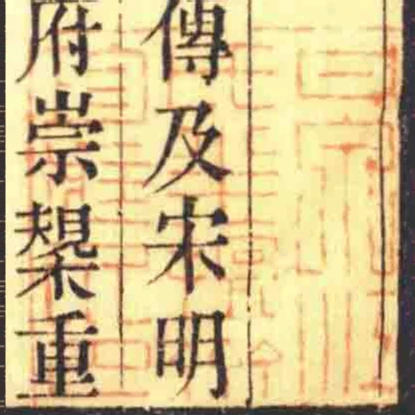 傳及宋明
府崇槼重